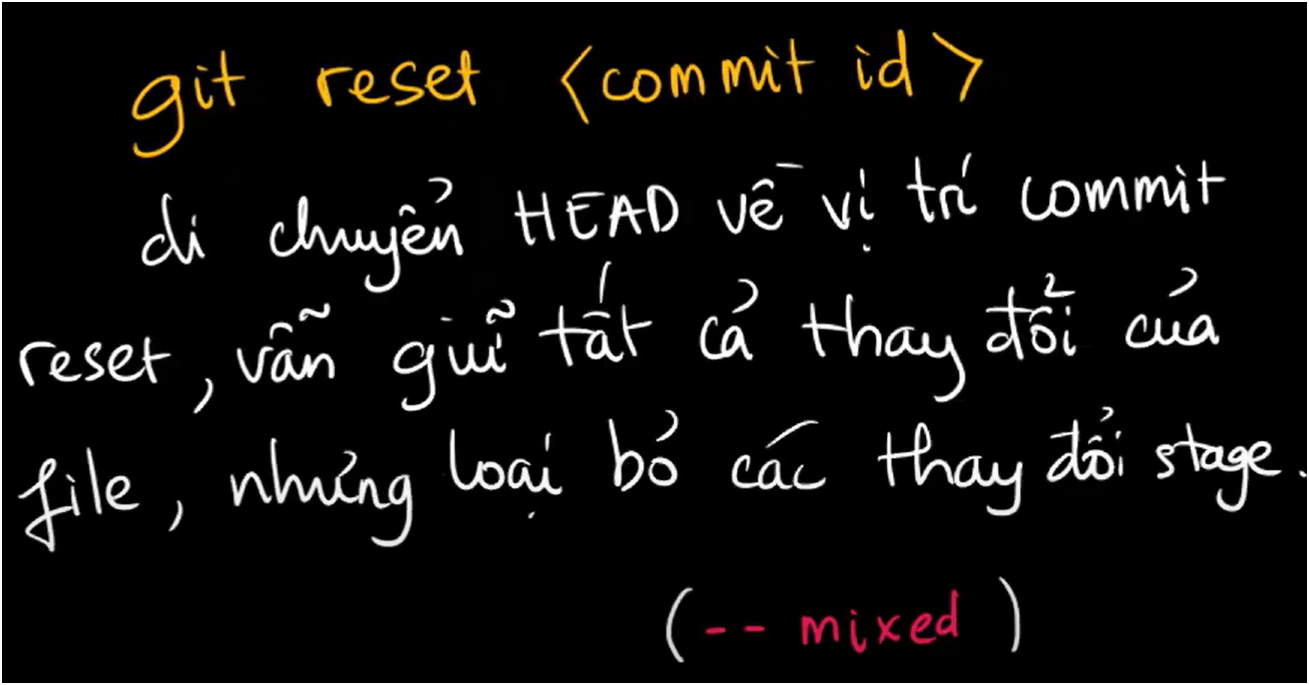 git reset <commit id>
di chuyển HEAD về vị trí commit
reset, vẫn giữ tất cả thay đổi của
file, nhưng loại bỏ các thay đổi stage.
(-- mixed)